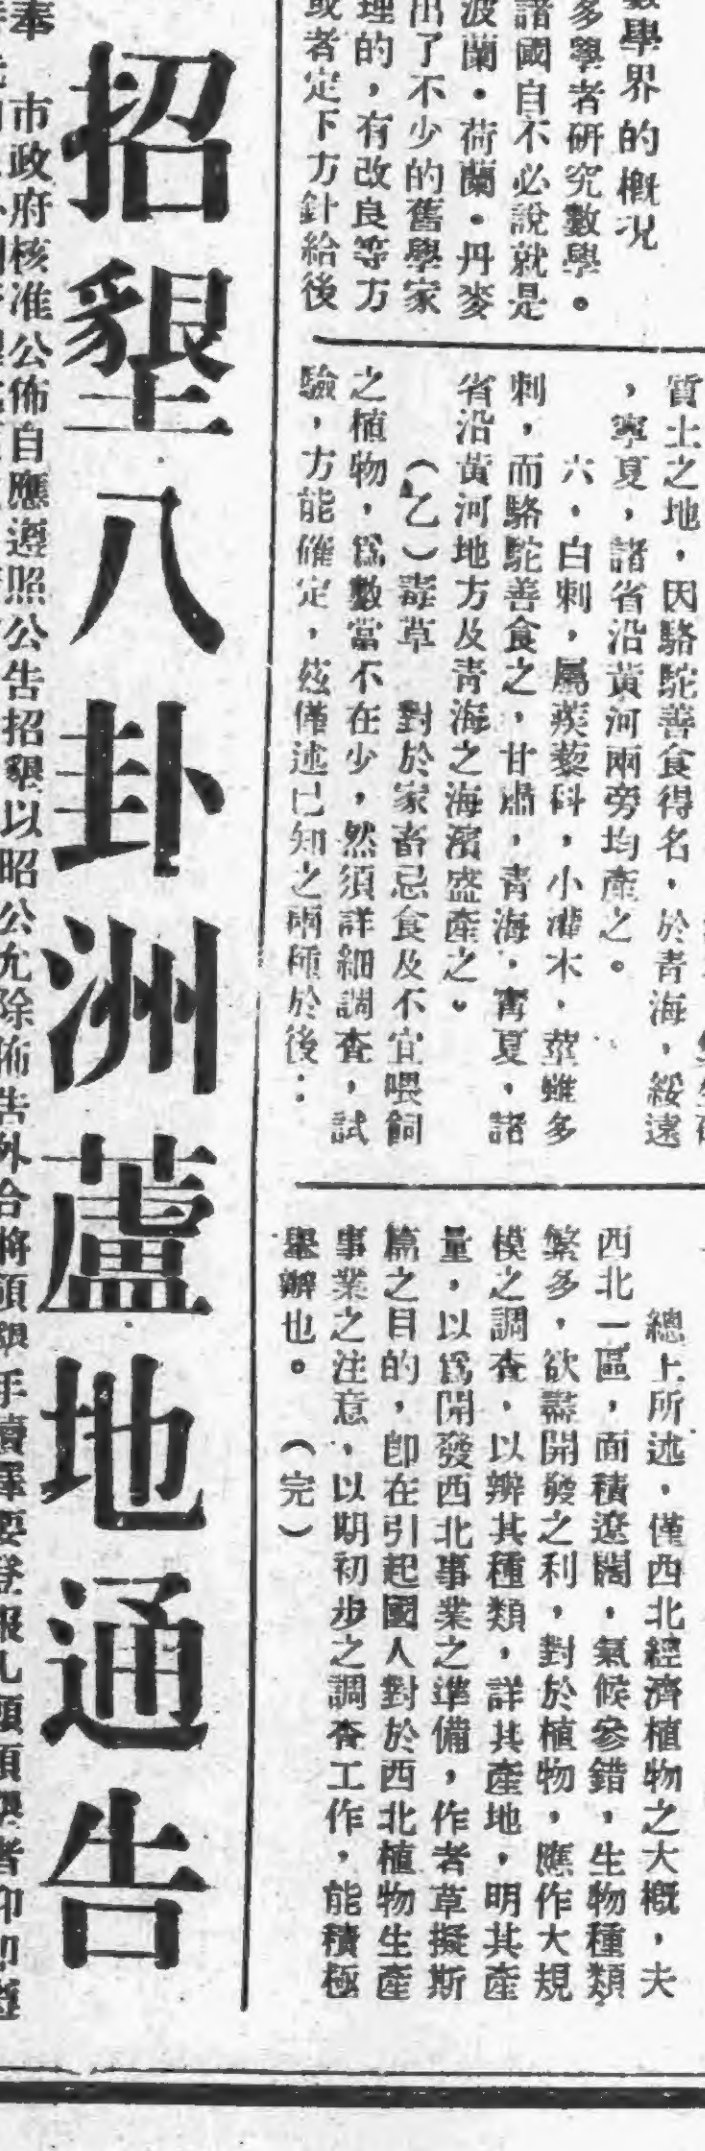 學界的概況
多學者研究數學。
諸國自不必說就是
波蘭。荷蘭。丹麥
出了不少的舊學家
理的，有改良等方
或者定下方針給後
質土之地，因駱駝善食得名，於青海，綏遠
，寧夏，諸省沿黃河兩旁均產之。
六，白刺，屬蒺藜科，小灌木，莖雖多
刺，而駱駝善食之，甘肅，青海，甯夏，諸
省沿黃河地方及青海之海濱盛產之。
（乙）毒草　對於家畜忌食及不宜喂飼
之植物，爲數當不在少，然須詳細調查，試
驗，方能確定，茲僅述已知之兩種於後：
總上所述，僅西北經濟植物之大概，夫
西北一區，面積遼闊，氣候參錯，生物種類
繁多，欲盡開發之利，對於植物，應作大規
模之調查，以辨其種類，詳其產地，明其產
量，以爲開發西北事業之準備，作者草擬斯
篇之目的，卽在引起國人對於西北植物生產
事業之注意，以期初步之調查工作，能積極
舉辦也。　（完）
招墾八卦洲蘆地通告
奉　市政府核准公佈自應遵照公告招墾以昭公允除佈告外合將領墾手續擇要登報凡願領墾者仰卽遵